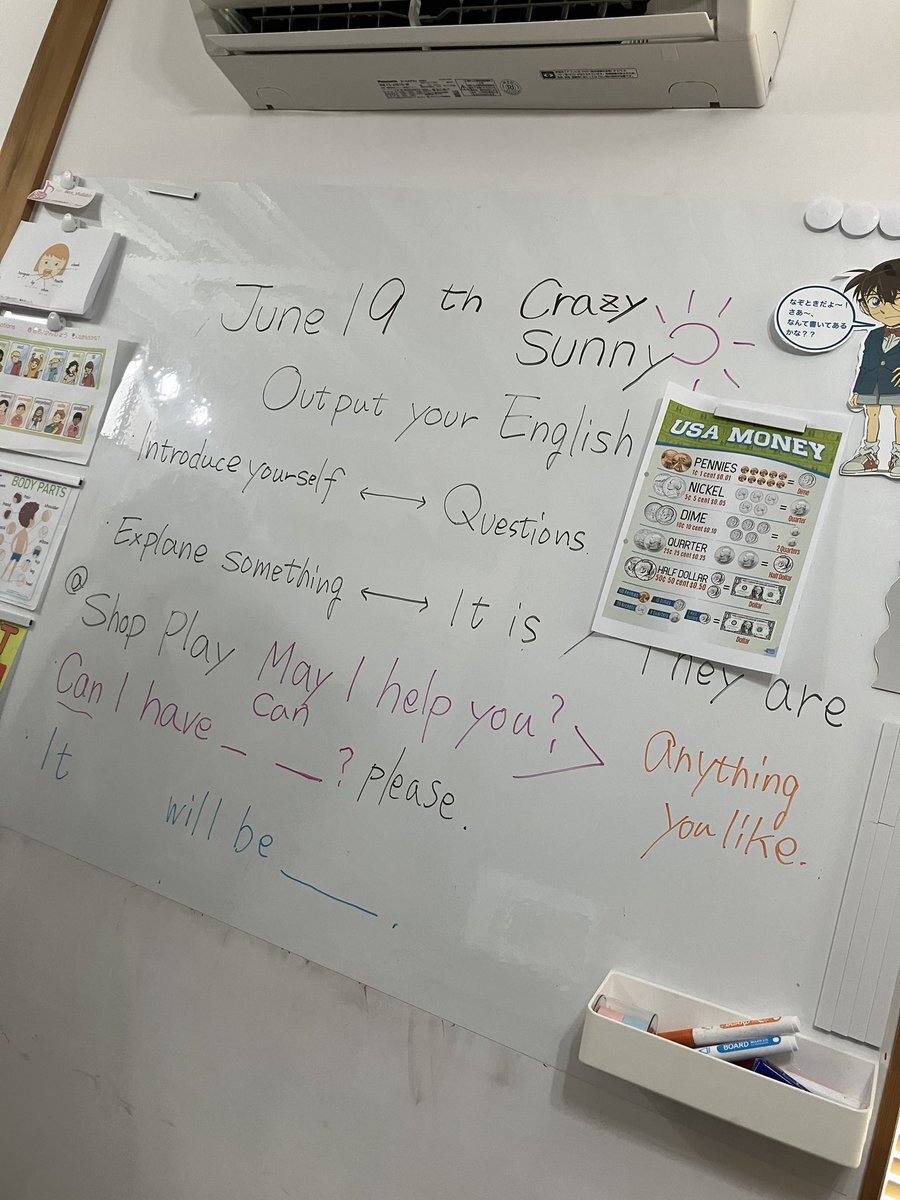 Panasonic
June 19 th Crazy
Sunny
Output your English
Introduce yourself ↔ Questions.
Explane something ↔ It is
They are
@ Shop Play May I help you?
Can
Anything
you like.
Can I have _ _ ? please.
It
will be ____.
なぞときだよ〜!
さあ〜、
なんて書いてある
かな??
USA MONEY
PENNIES
1¢ 1 cent $0.01
Dime
NICKEL
5¢ 5 cent $0.05
Quarter
DIME
10¢ 10 cent $0.10
2 Quarters
QUARTER
25¢ 25 cent $0.25
Half Dollar
HALF DOLLAR
50¢ 50 cent $0.50
Dollar
Dollar
BODY PARTS
BOARD